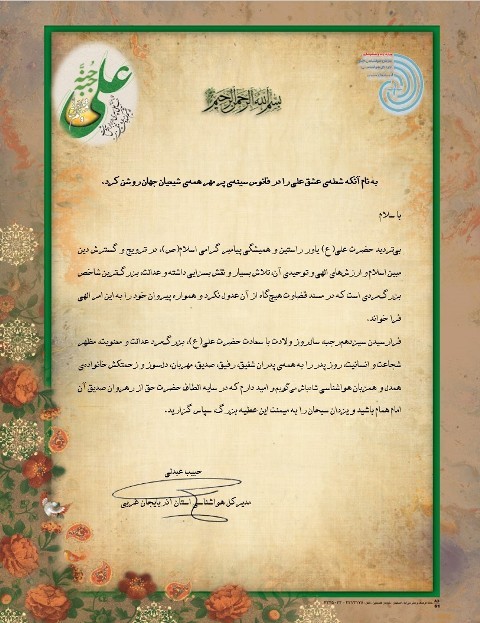 علی
حبه جنة
بسم الله الرحمن الرحیم
به نام آنکه شعله‌ی عشق علی را در فانوس سینه‌ی پر مهر همه‌ی شیعیان جهان روشن کرد.
با سلام
بی‌تردید حضرت علی(ع) یاور راستین و همیشگی پیامبر گرامی اسلام(ص)، در ترویج و گسترش دین
مبین اسلام و ارزش‌های الهی و توحیدی آن، تلاش بسیار و نقش بسزایی داشته و عدالت، بزرگ‌ترین شاخص
بزرگ‌مردی است که در مسند قضاوت هیچ‌گاه از آن عدول نکرد و همواره پیروان خود را به این امر الهی
فرا خواند.
فرا رسیدن سیزدهم رجب، سالروز ولادت با سعادت حضرت علی(ع)، بزرگ‌مرد عدالت و معنویت، مظهر
شجاعت و انسانیت، روز پدر را به همه‌ی پدران شفیق، رفیق، صدیق، مهربان، دلسوز و زحمتکش خانواده‌ی
همدل و همزبان هواشناسی شادباش می‌گویم و امید دارم که در سایه الطاف حضرت حق از رهروان صدیق آن
امام همام باشید و یزدان سبحان را به میمنت این عطیه بزرگ، سپاس گزارید.
حبیب عبدلی
مدیر کل هواشناسی استان آذربایجان غربی